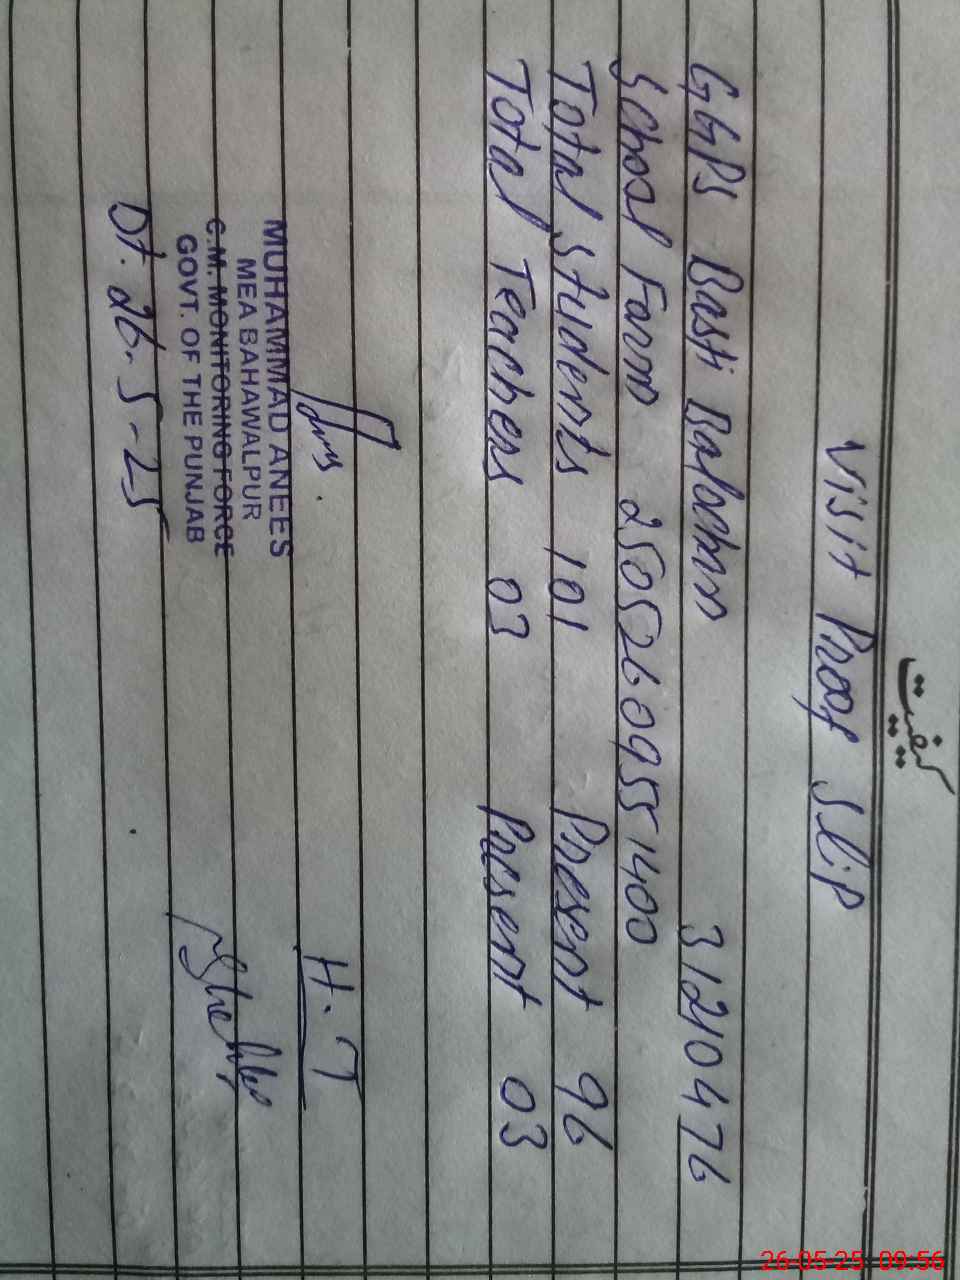 کیفیت
Visit Proof Slip
GGPS Basti Balochan 31210476
School Form 25052609551400
Total Students 101 Present 96
Total Teachers 03 Present 03
H.T
MUHAMMAD ANEES
MEA BAHAWALPUR
C.M. MONITORING FORCE
GOVT. OF THE PUNJAB
Dt. 26-5-25
26-05-25 09:56